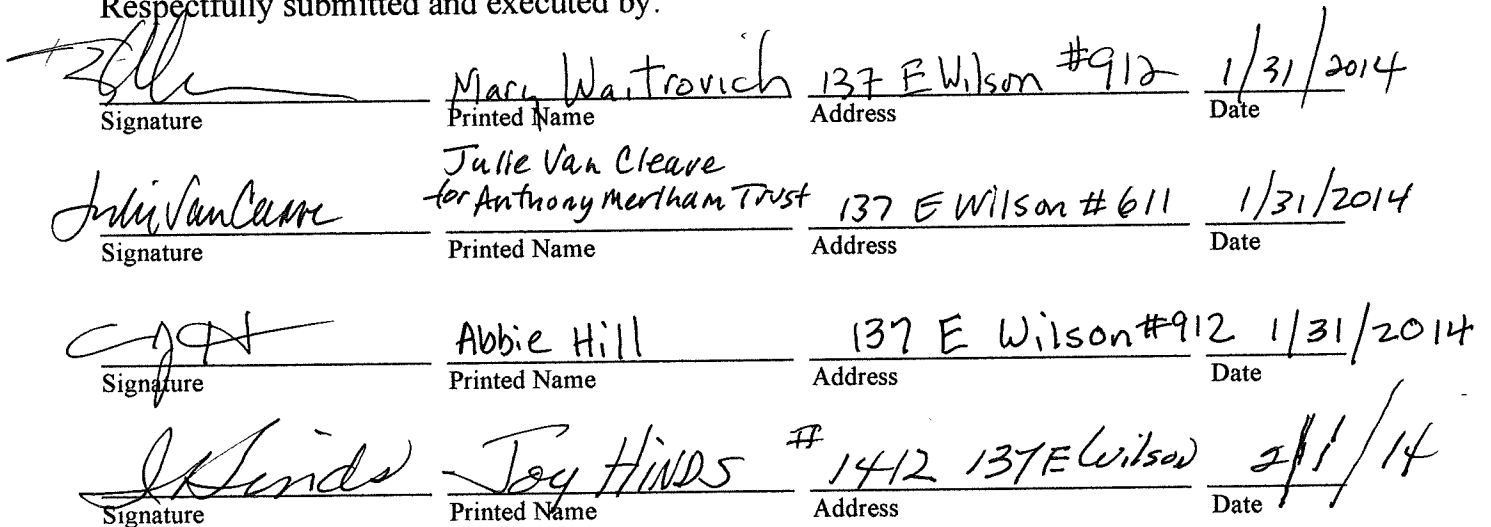 Respectfully submitted and executed by:
Mary Waitrovich 137 E Wilson #912 1/31/2014
Signature Printed Name Address Date
Julie Van Cleave
Julie Van Cleave for Anthony Mertham Trust 137 E Wilson # 611 1/31/2014
Signature Printed Name Address Date
Abbie Hill 137 E Wilson #912 1/31/2014
Signature Printed Name Address Date
J Hinds Joy HINDS # 1412 137 E Wilson 2/1/14
Signature Printed Name Address Date